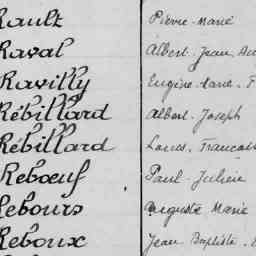 Rault Pierre-Marie
Raval Albert-Jean
Ravilly Eugène
Rébillard Albert-Joseph
Rébillard Louis-Francois
Rebœuf Paul-Julien
Rebours Auguste Marie
Reboux Jean Baptiste